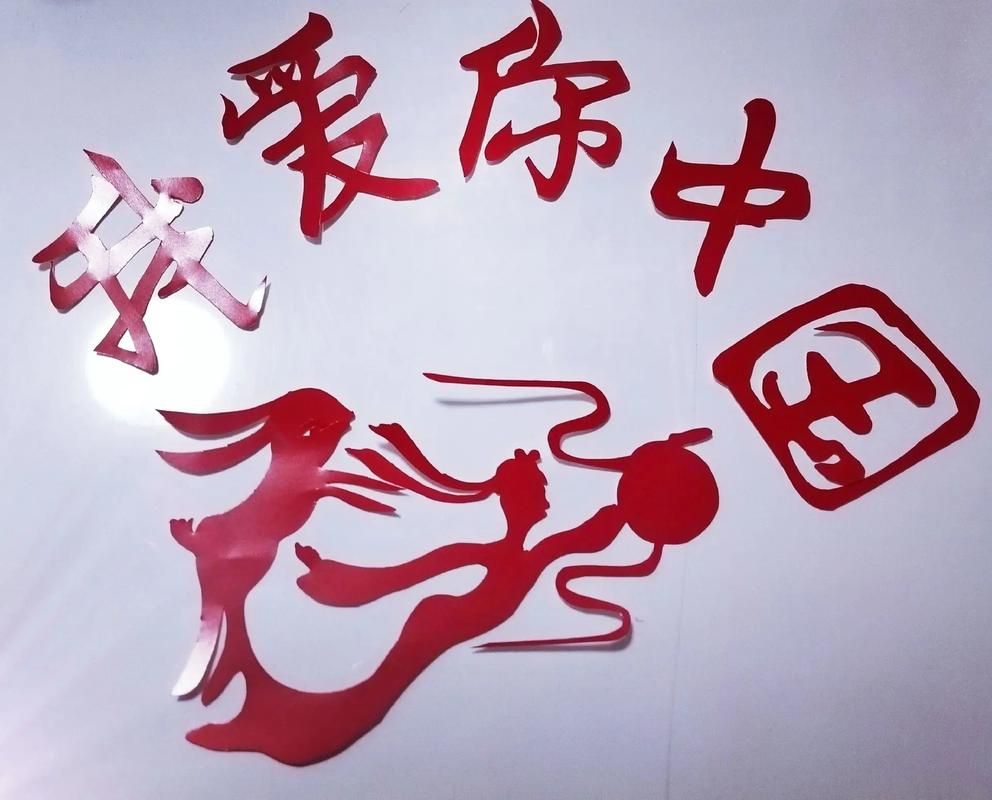 我爱你中国